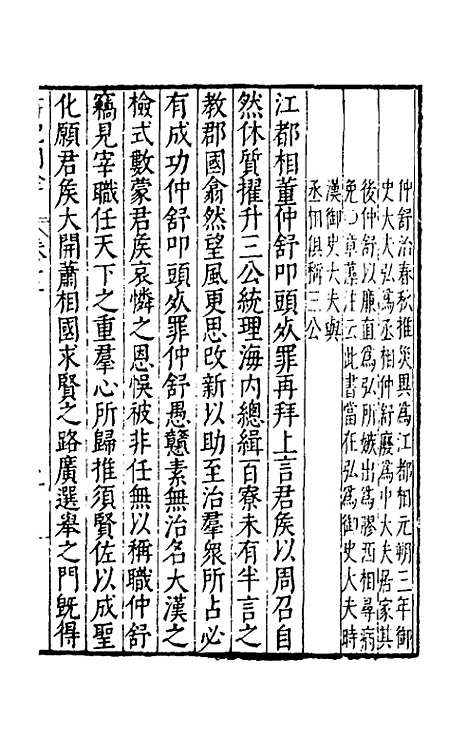 仲舒治春秋推災異爲江都相元朔三年御
史大夫弘爲丞相仲舒廢爲中大夫居家其
後仲舒以廉直爲弘所嫉出爲膠西相尋病
免章藻注云此書當在弘爲御史大夫時
漢御史大夫與
丞相俱稱三公
江都相董仲舒叩頭死罪再拜上言君侯以周召自
然休質擢升三公統理海内總緝百寮未有半言之
教郡國翕然望風更思改新以助至治羣衆所占必
有成功仲舒叩頭死罪仲舒愚戇素無治名大漢之
檢式數蒙君侯哀憐之恩悞被非任無以稱職仲舒
竊見宰職任天下之重羣心所歸推須賢佐以成聖
化願君侯大開蕭相國求賢之路廣選舉之門旣得